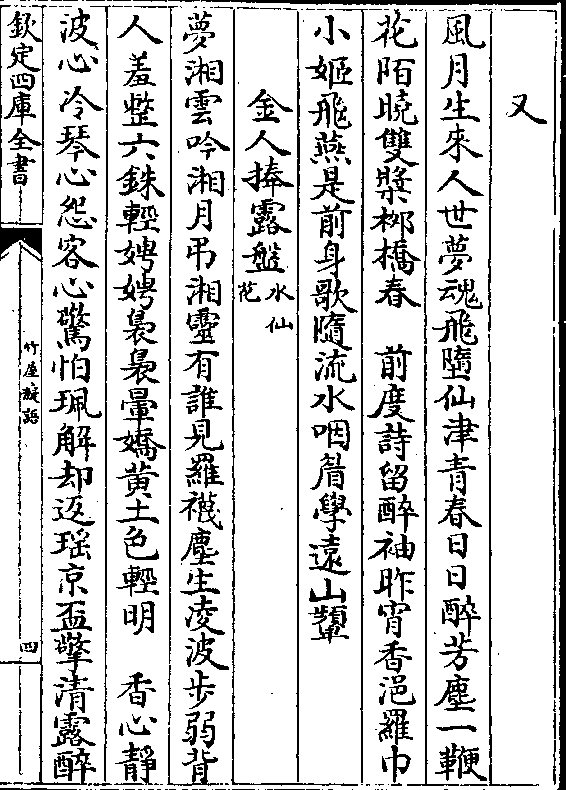 又
風月生來人世夢魂飛墮仙津青春日日醉芳塵一鞭
花陌曉雙槳柳橋春　前度詩留醉袖昨宵香浥羅巾
小姬飛燕是前身歌隨流水咽眉學逺山顰
金人捧露盤水仙花
夢湘雲吟湘月弔湘靈有誰見羅襪塵生凌波步弱背
人羞整六銖輕娉娉裊裊暈嬌黃玉色輕明　香心靜
波心冷琴心怨客心驚怕珮解却返瑶京盃擎清露醉
欽定四庫全書
竹屋癡語
四